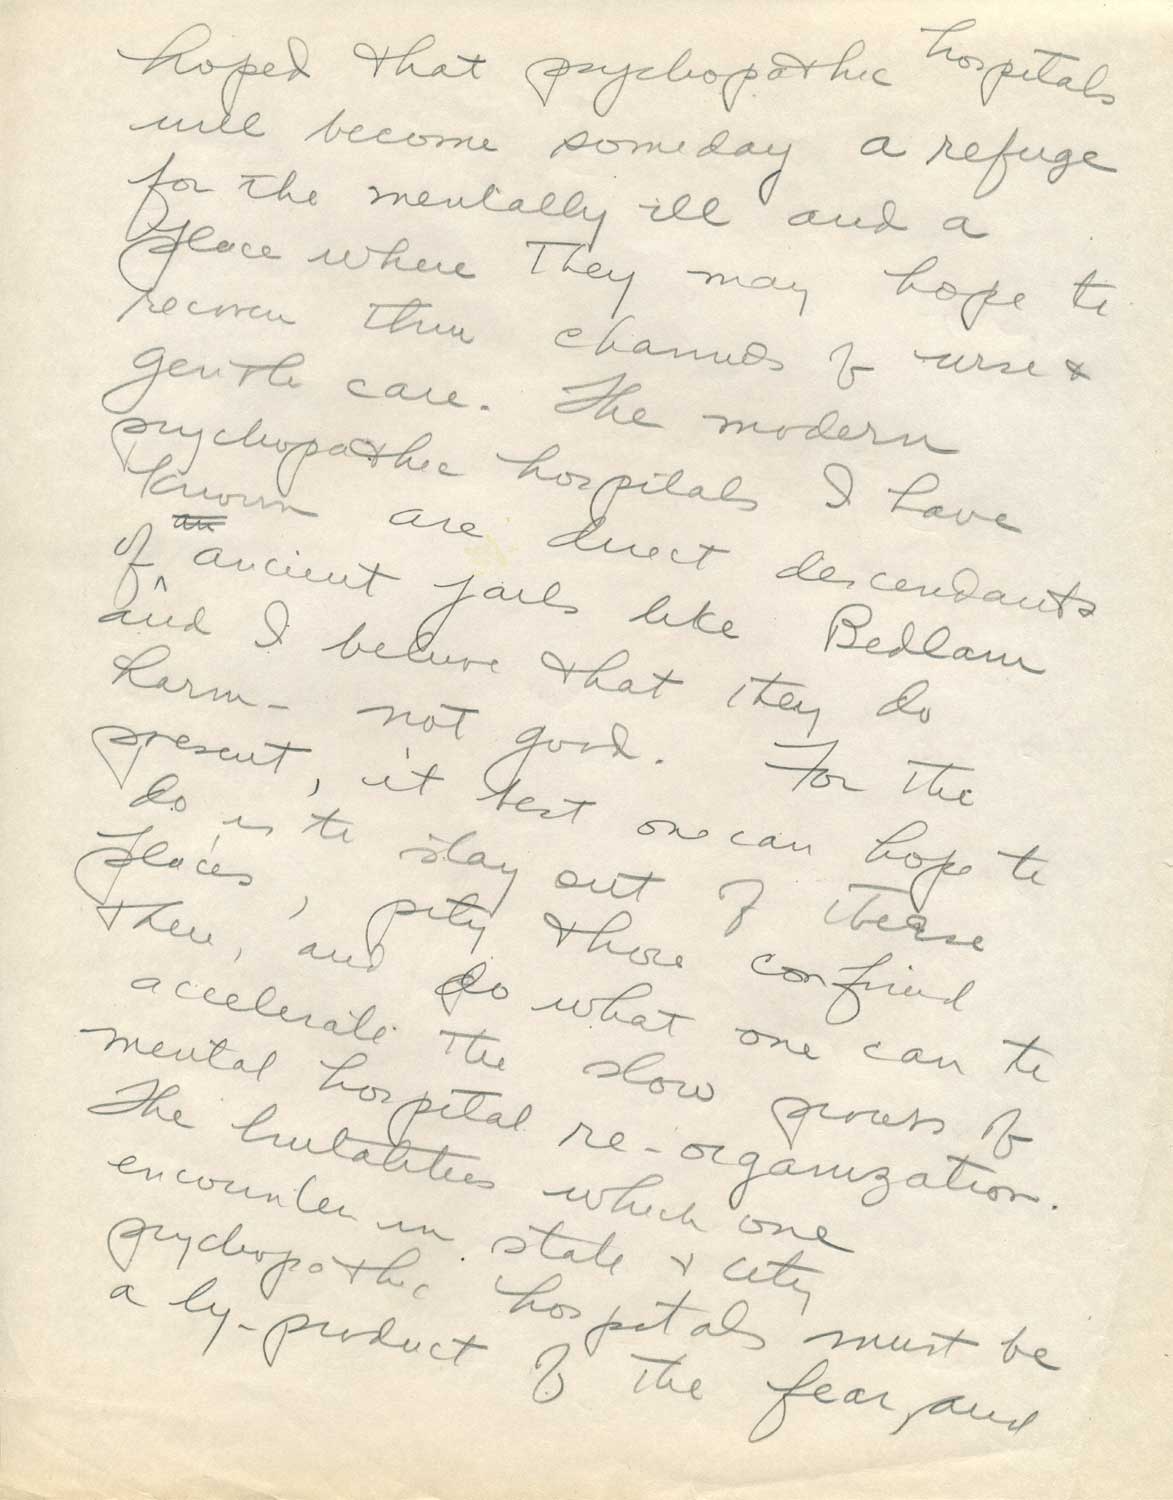 hoped that psychopathic hospitals
will become someday a refuge
for the mentally ill and a
place where they may hope to
recover thru channels of wise &
gentle care. The modern
psychopathic hospitals I have
known are direct descendants
of an ancient jails like Bedlam
and I believe that they do
harm - not good. For the
present, it best one can hope to
do is to stay out of these
places, pity those confined
there, and do what one can to
accelerate the slow process of
mental hospital re-organization.
The brutalities which one
encounter in state & city
psychopathic hospitals must be
a by-product of the fear, and